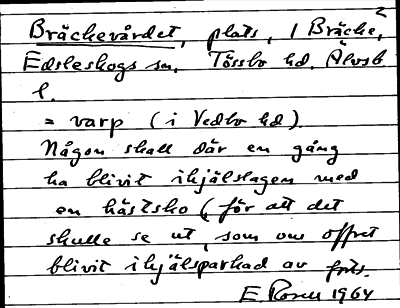 Bräckevårdet, plats, 1 Bräcke,2
Edsleskogs sn. Tössbo hd. Älvsb
l.
= varp (i Vedbo hd).
Någon skall där en gång
ha blivit ihjälslagen med
en hästsko (för att det
skulle se ut, som om offret
blivit ihjälsparkad av
E Rosell 1964